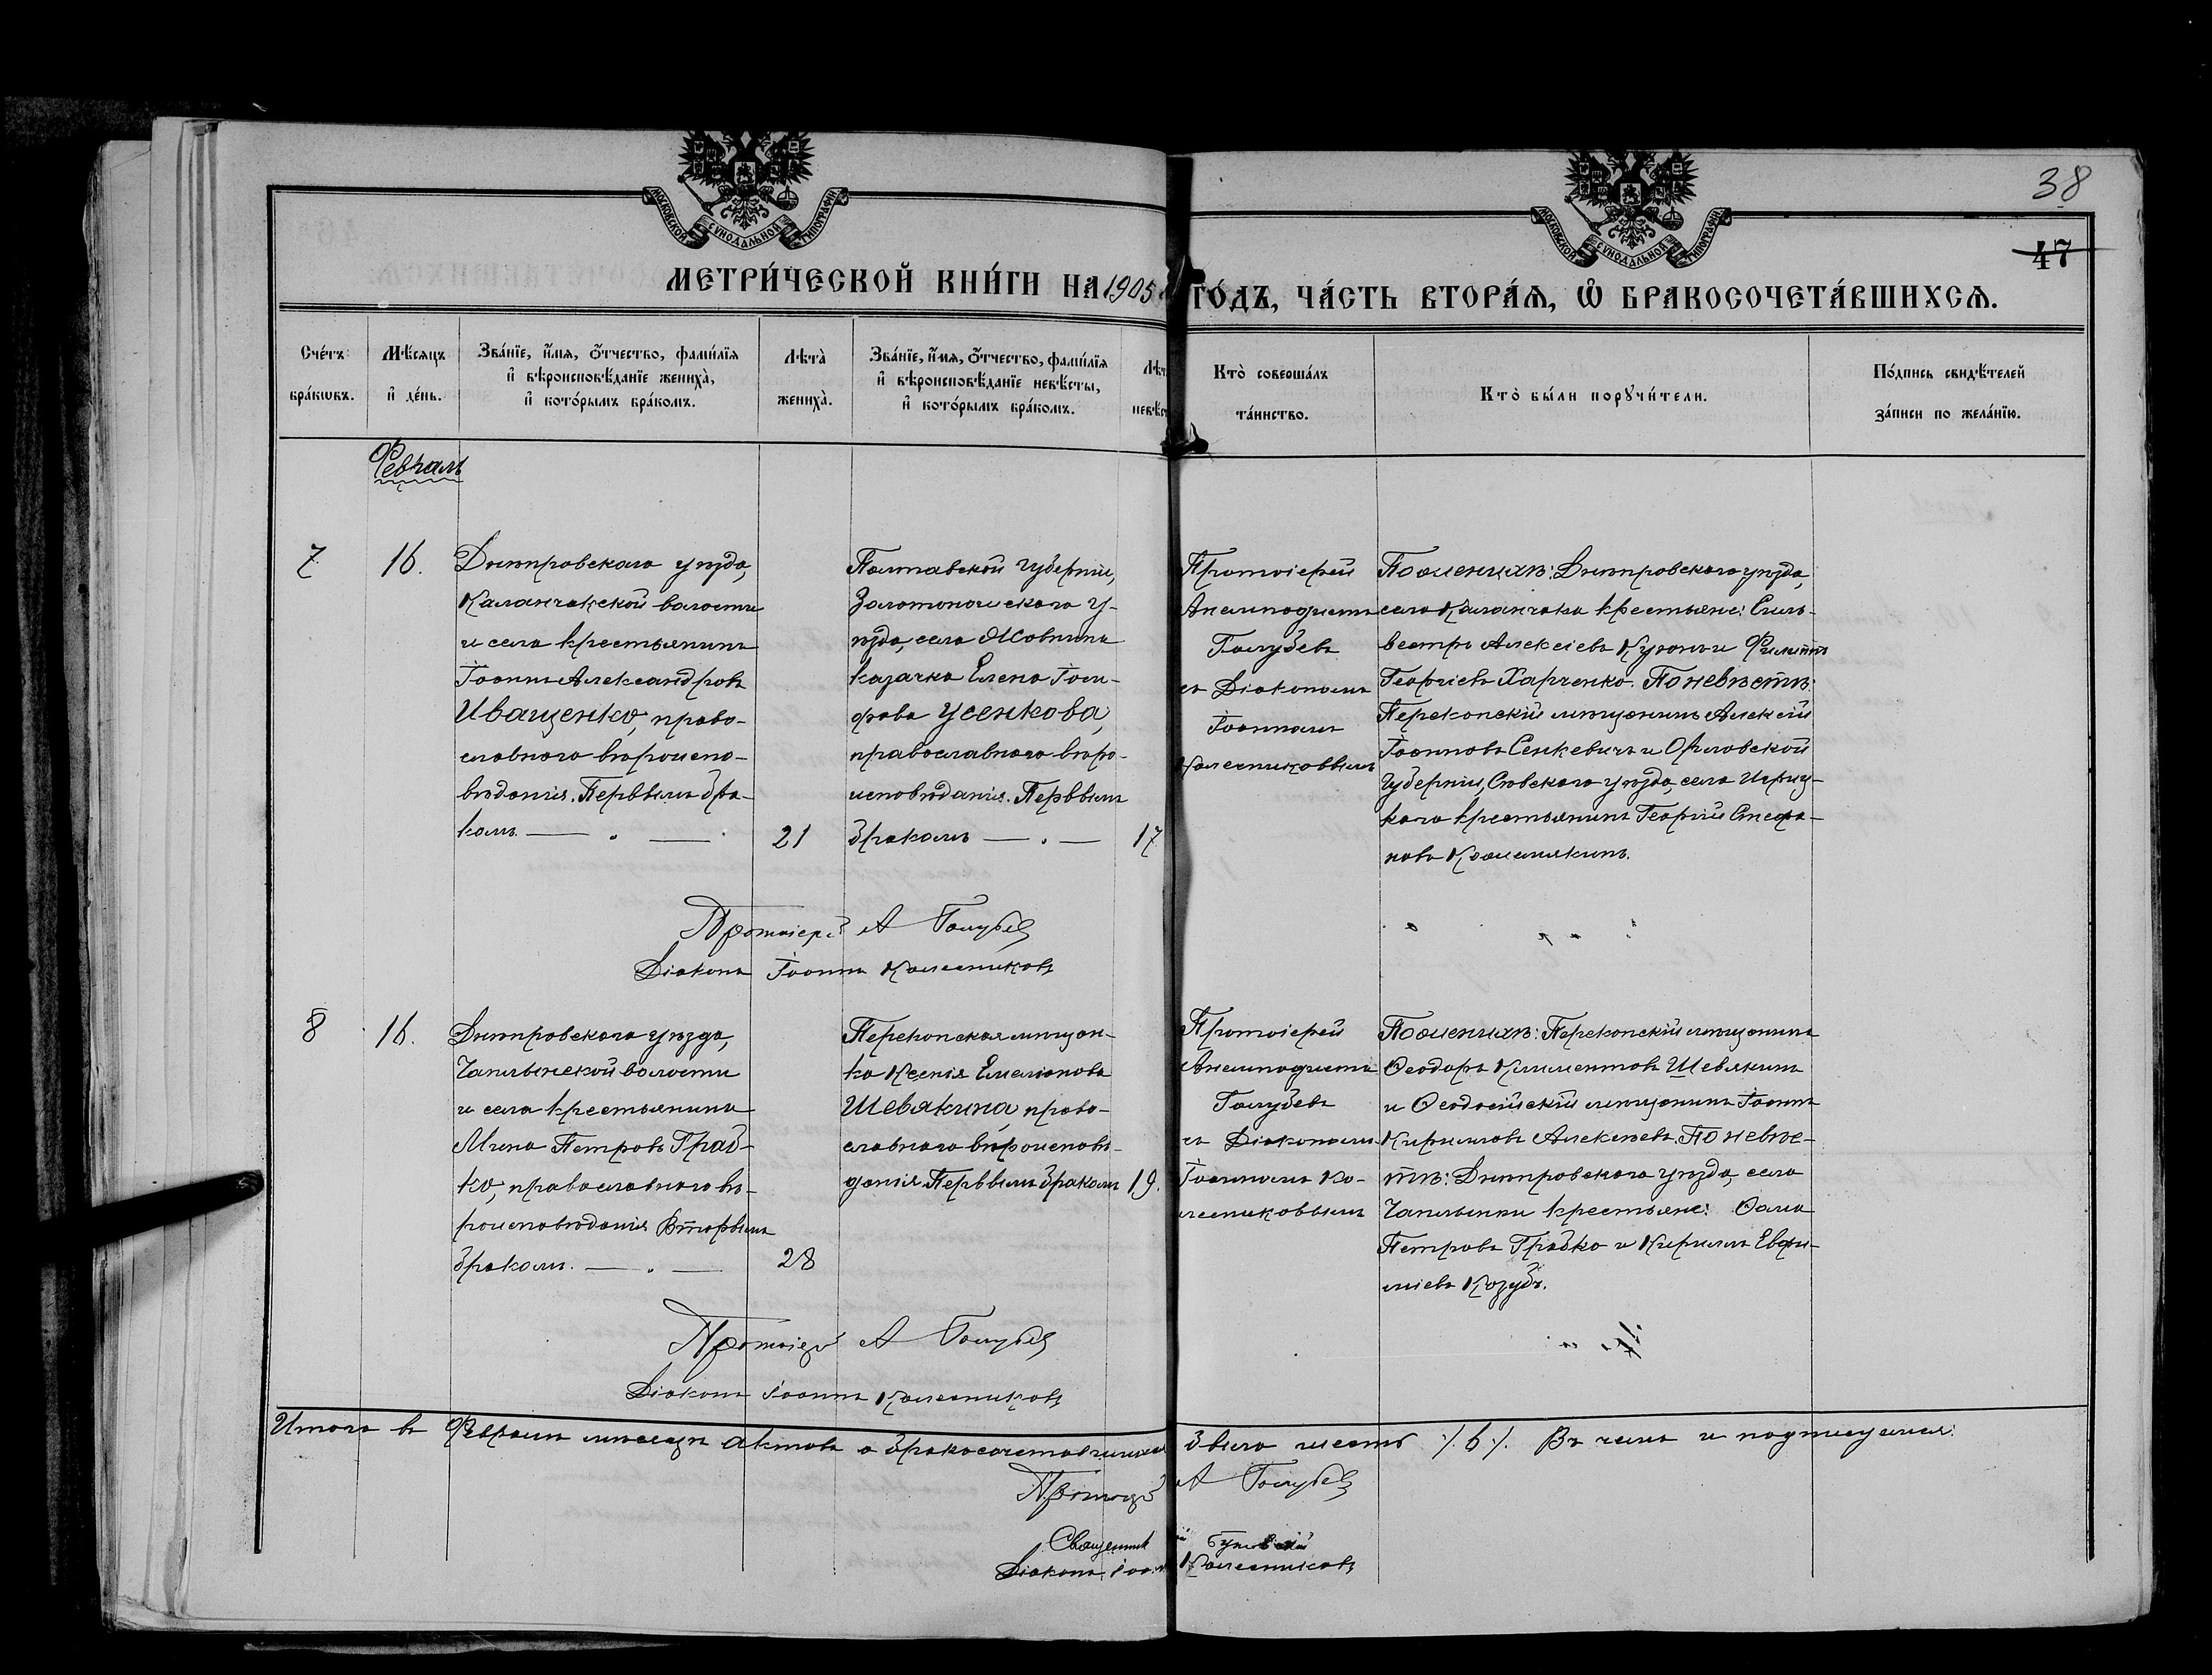 МОСКОВСКОЙ СУНОДАЛЬНОЙ ТИПОГРАФІИ
МОСКОВСКОЙ СУНОДАЛЬНОЙ ТИПОГРАФІИ
38
47
МЕТРИ́ЧЕСКОЙ КНИ́ГИ НА 1905
ГО́ДЪ, ЧА́СТЬ ВТОРА́Ѧ, Ѽ БРАКОСОЧЕТА́ВШИХСѦ.
Сче́тъ
бра́кѡвъ.
Мѣ́сяцъ
и҆ де́нь.
Зва́нїе, и҆́мя, ѻ҆́тчество, фами́лїя
и҆ вѣроисповѣ́данїе жениха̀,
и҆ кото́рымъ бра́комъ.
Лѣта̀
жениха̀.
Зва́нїе, и҆́мя, ѻ҆́тчество, фами́лїя
и҆ вѣроисповѣ́данїе невѣ́сты,
и҆ кото́рымъ бра́комъ.
Кто̀ соверша́лъ
та́инство.
Кто̀ бы́ли порꙋчи́тели.
По́дпись свидѣ́телей
за́писи по жела́нїю.
Февраль
7
16.
Днѣпровскаго уѣзда,
Каланчакской волости
и села крестьянинъ
Іоаннъ Александровъ
Иващенко, право-
славнаго вѣроиспо-
вѣданія. Первымъ бра-
комъ. — . —
21
Полтавской губерніи,
Золотоношскаго у-
ѣзда, села Жовнина
казачка Елена Іоси-
фова Усенкова,
православнаго вѣро-
исповѣданія. Первымъ
бракомъ — . —
17
Протоіерей
Анемподистъ
Голубевъ
съ Діакономъ
Іоанномъ
Колесниковымъ
По женихѣ: Днѣпровскаго уѣзда,
села Каланчака крестьяне: Силь-
вестръ Алексіевъ и Филиппъ
Георгіевъ Харченко. По невѣстѣ:
Перекопскій мѣщанинъ Алексій
Іоанновъ Сенкевичъ и Орловской
губерніи, Сѣвскаго уѣзда, села
крестьянинъ Георгій Стефа-
новъ
Протоіерей А Голубевъ
Діаконъ Іоаннъ Колесниковъ
8
16.
Днѣпровскаго уѣзда,
Чаплынской волости
и села крестьянинъ
Мина Петровъ Граб-
ко, православнаго вѣ-
роисповѣданія Вторымъ
бракомъ. — . —
28
Перекопская мѣщан-
ка Ксенія Емеліанова
Шевякина, право-
славнаго вѣроисповѣ-
данія. Первымъ бракомъ
19.
Протоіерей
Анемподистъ
Голубевъ
съ Діакономъ
Іоанномъ Ко-
лесниковымъ
По женихѣ: Перекопскій мѣщанинъ
Ѳеодоръ Климентовъ Шевякинъ
и Ѳеодосійскій мѣщанинъ Іоаннъ
Кирилловъ Алексѣевъ. По невѣс-
тѣ: Днѣпровскаго уѣзда, села
Чаплынки крестьяне: Ѳома
Петровъ Грабко и Кириллъ Евфи-
міевъ Козубъ.
Протоіерей А Голубевъ
Діаконъ Іоаннъ Колесниковъ
Итого въ Февралѣ мѣсяцѣ актовъ о бракосочетавшихся было шесть ·/. 6 ·/. Въ чемъ и подписуемся:
Протоіерей А Голубевъ
Священник
Діаконъ Іоаннъ Колесниковъ